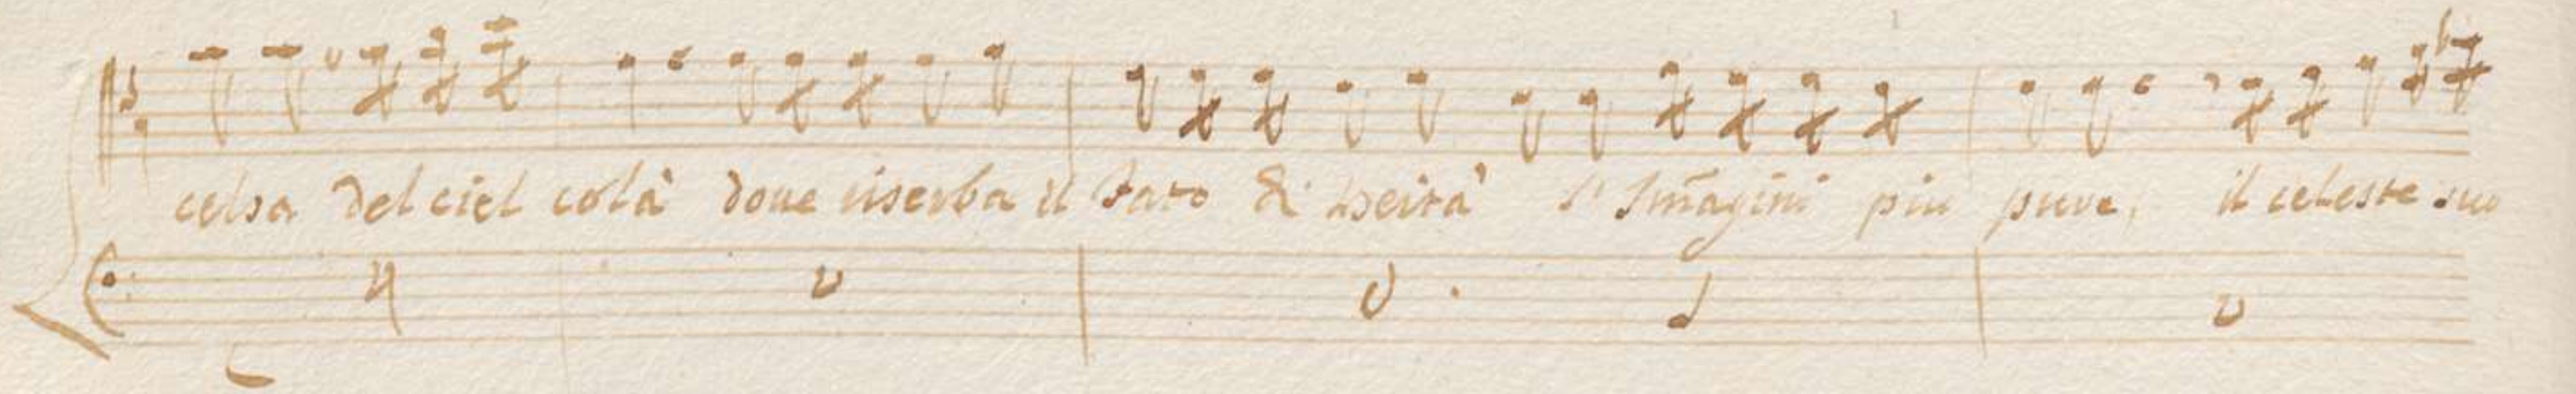 celsa del ciel colà doue riserba il Fato di beltà l'Im̃agini piu pure, il celeste suo